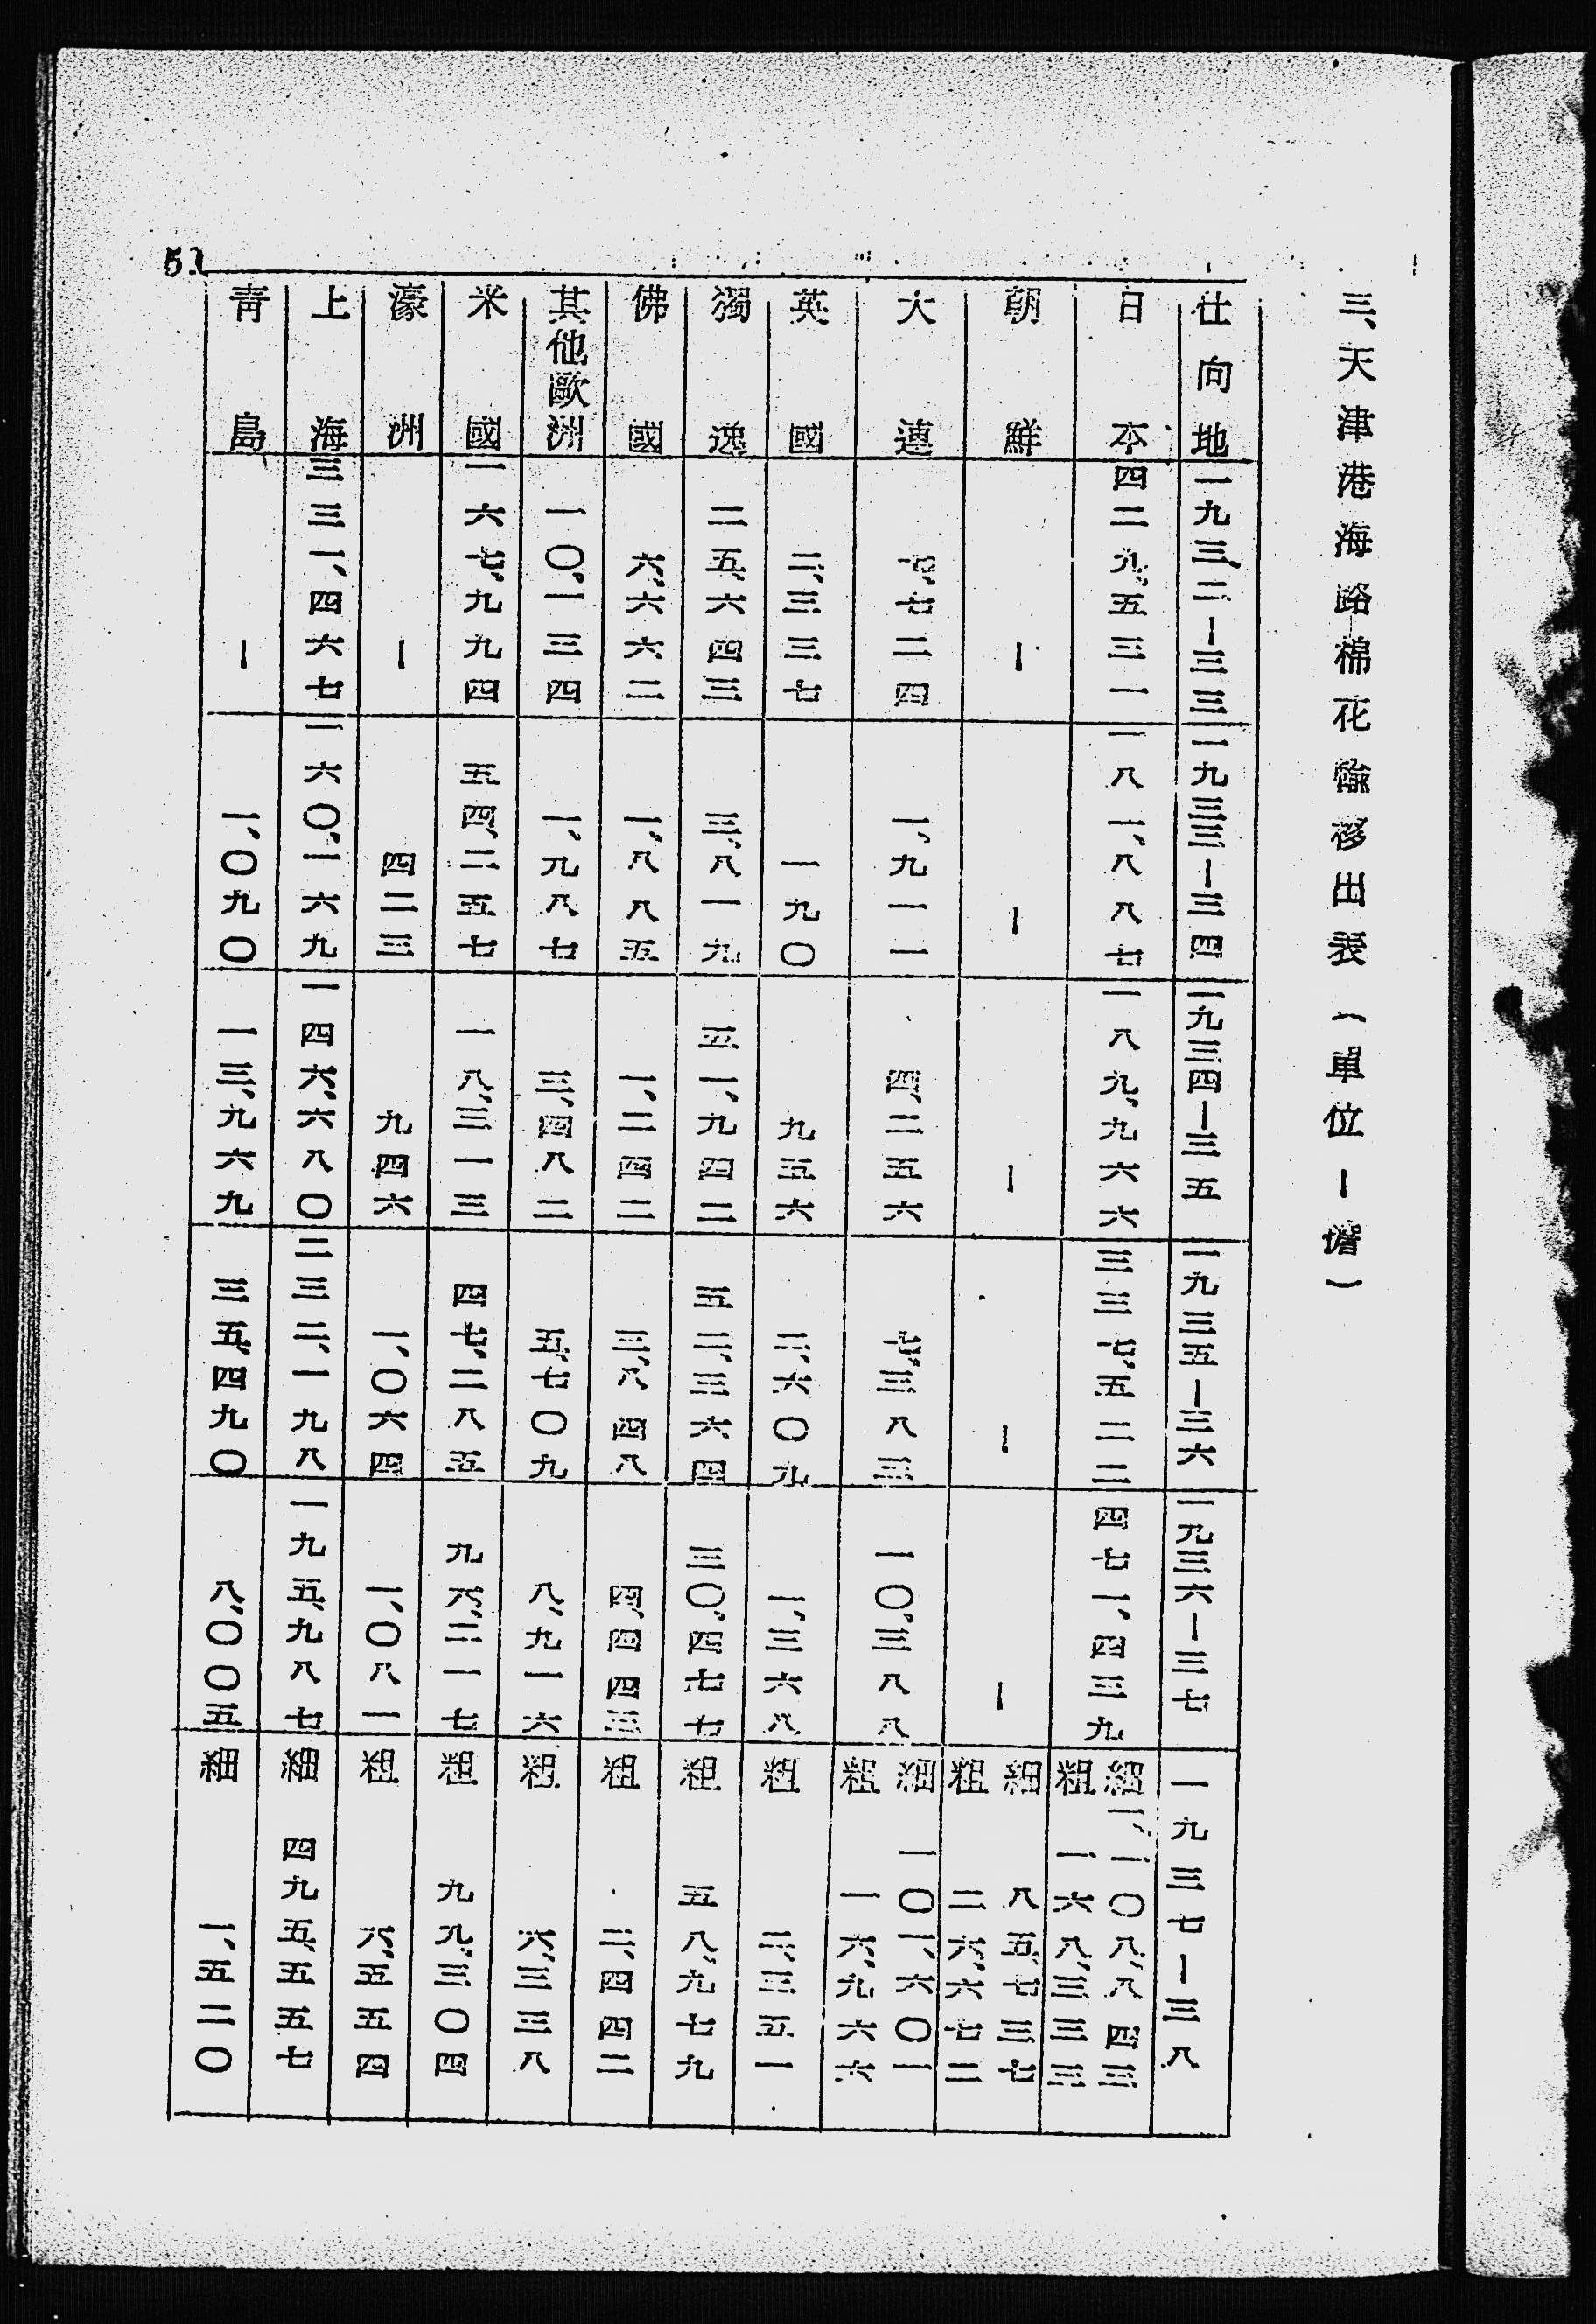 三、天津港海路棉花輸移出表（單位ー擔）
仕向地 一九三二ー三三 一九三三ー三四 一九三四ー三五 一九三五ー三六 一九三六ー三七 一九三七ー三八
日本 四二九、五三一 一八一、八八七 一八九、九六六 三三七、五二二 四七一、四三九 細 一、一〇八、八四三
粗 一六八、三三三
朝鮮 ー ー ー ー ー 細 八五、七三七
粗 二六、六七二
大連 七、七二四 一、九一一 四、二五六 七、三八三 一〇、三八八 細 一〇一、六〇一
粗 一六、九六六
英國 二、三三七 一九〇 九五六 二、六〇九 一、三六八 粗 二、三五一
獨逸 二五、六四三 三、八一九 五一、九四二 五二、三六四 三〇、四七七 粗 五八、九七九
佛國 六、六六二 一、八八五 一、二四二 三、八四八 四、四四三 粗 二、四四二
其他歐洲 一〇、一三四 一、九八七 三、四八二 五、七〇九 八、九一六 粗 六、三三八
米國 一六七、九九四 五四、二五七 一八、三一三 四七、二八五 九六、二一七 粗 九九、三〇四
濠洲 ー 四二三 九四六 一、〇六四 一、〇八一 粗 六、五五四
上海 三三一、四六七 一六〇、一六九 一四六、六八〇 二三二、一九八 一九五、九八七 細 四九五、五五七
靑島 ー 一、〇九〇 一三、九六九 三五、四九〇 八、〇〇五 細 一、五二〇